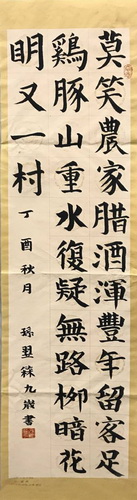 莫笑農家腊酒渾豐年留客足
鷄豚山重水復疑無路柳暗花
明又一村
丁酉秋月
孫翌森九歲書